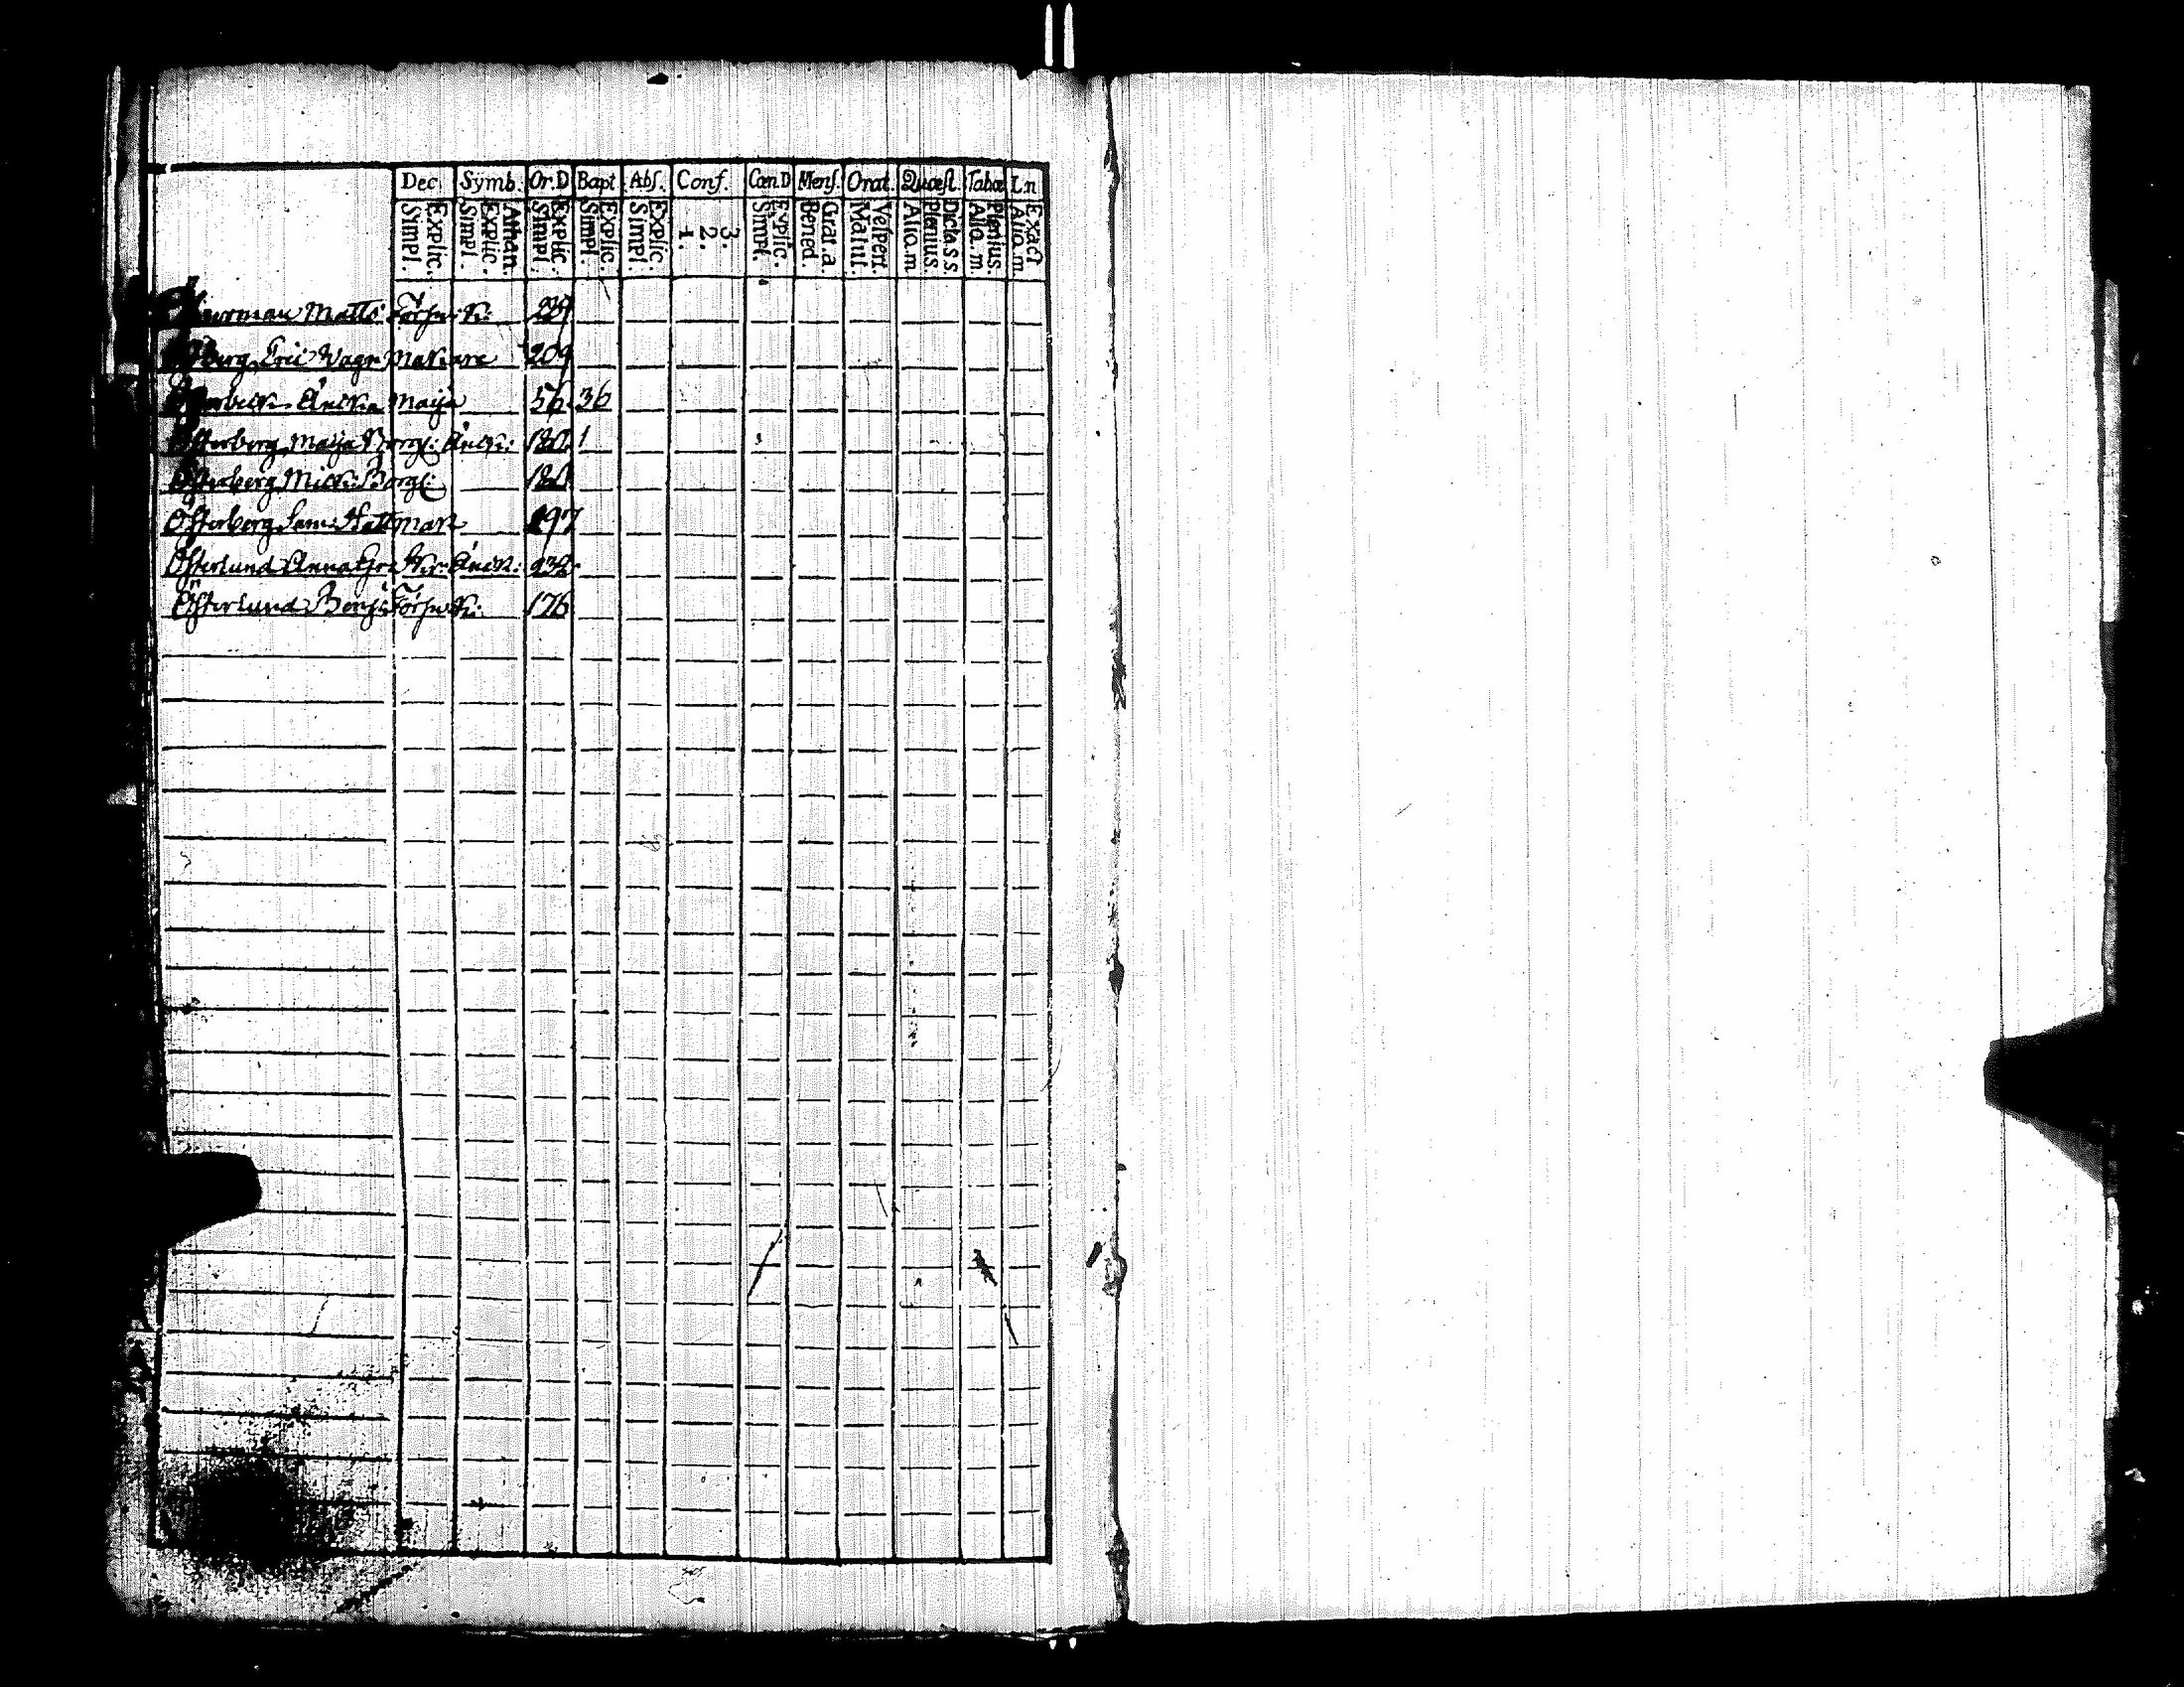 Dec. Symb. Or.D Bapt. Abs. Conf. Cœn.D Mens. Orat. Quæst. Tabœ Ln
Explic. Simpl. Athan. Explic. Simpl. Explic. Simpl. Explic. Simpl. Explic. Simpl. 3. 2. 1. Explic. Simpl. Grat.a. Bened. Vespert. Matut. Dicta.s.s. Plenius. Aliq.m. Plenius. Aliq.m. Exact Aliq.m.
Matts
berg Eric Wagn Makare 209
Maija 56. 36
Österberg, Maija Borgl: Änck: 180. 1
Österberg Mick: Borgl: 180
Österberg Sam: Hattmak 197
Österlund Anna Änck: 232
Österlund 176